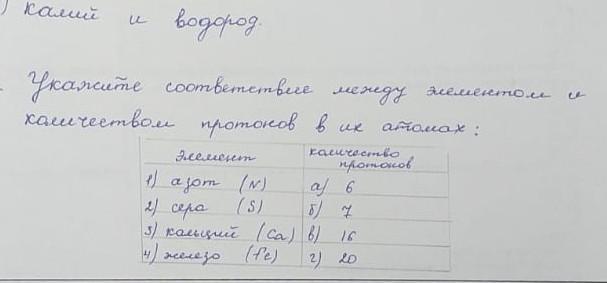 ) калий и водород.
. Укажите соответствие между элементом и
количеством протонов в их атомах:
элемент количество протонов
1) азот (N) а) 6
2) сера (S) б) 7
3) кальций (Ca) в) 16
4) железо (Fe) г) 20